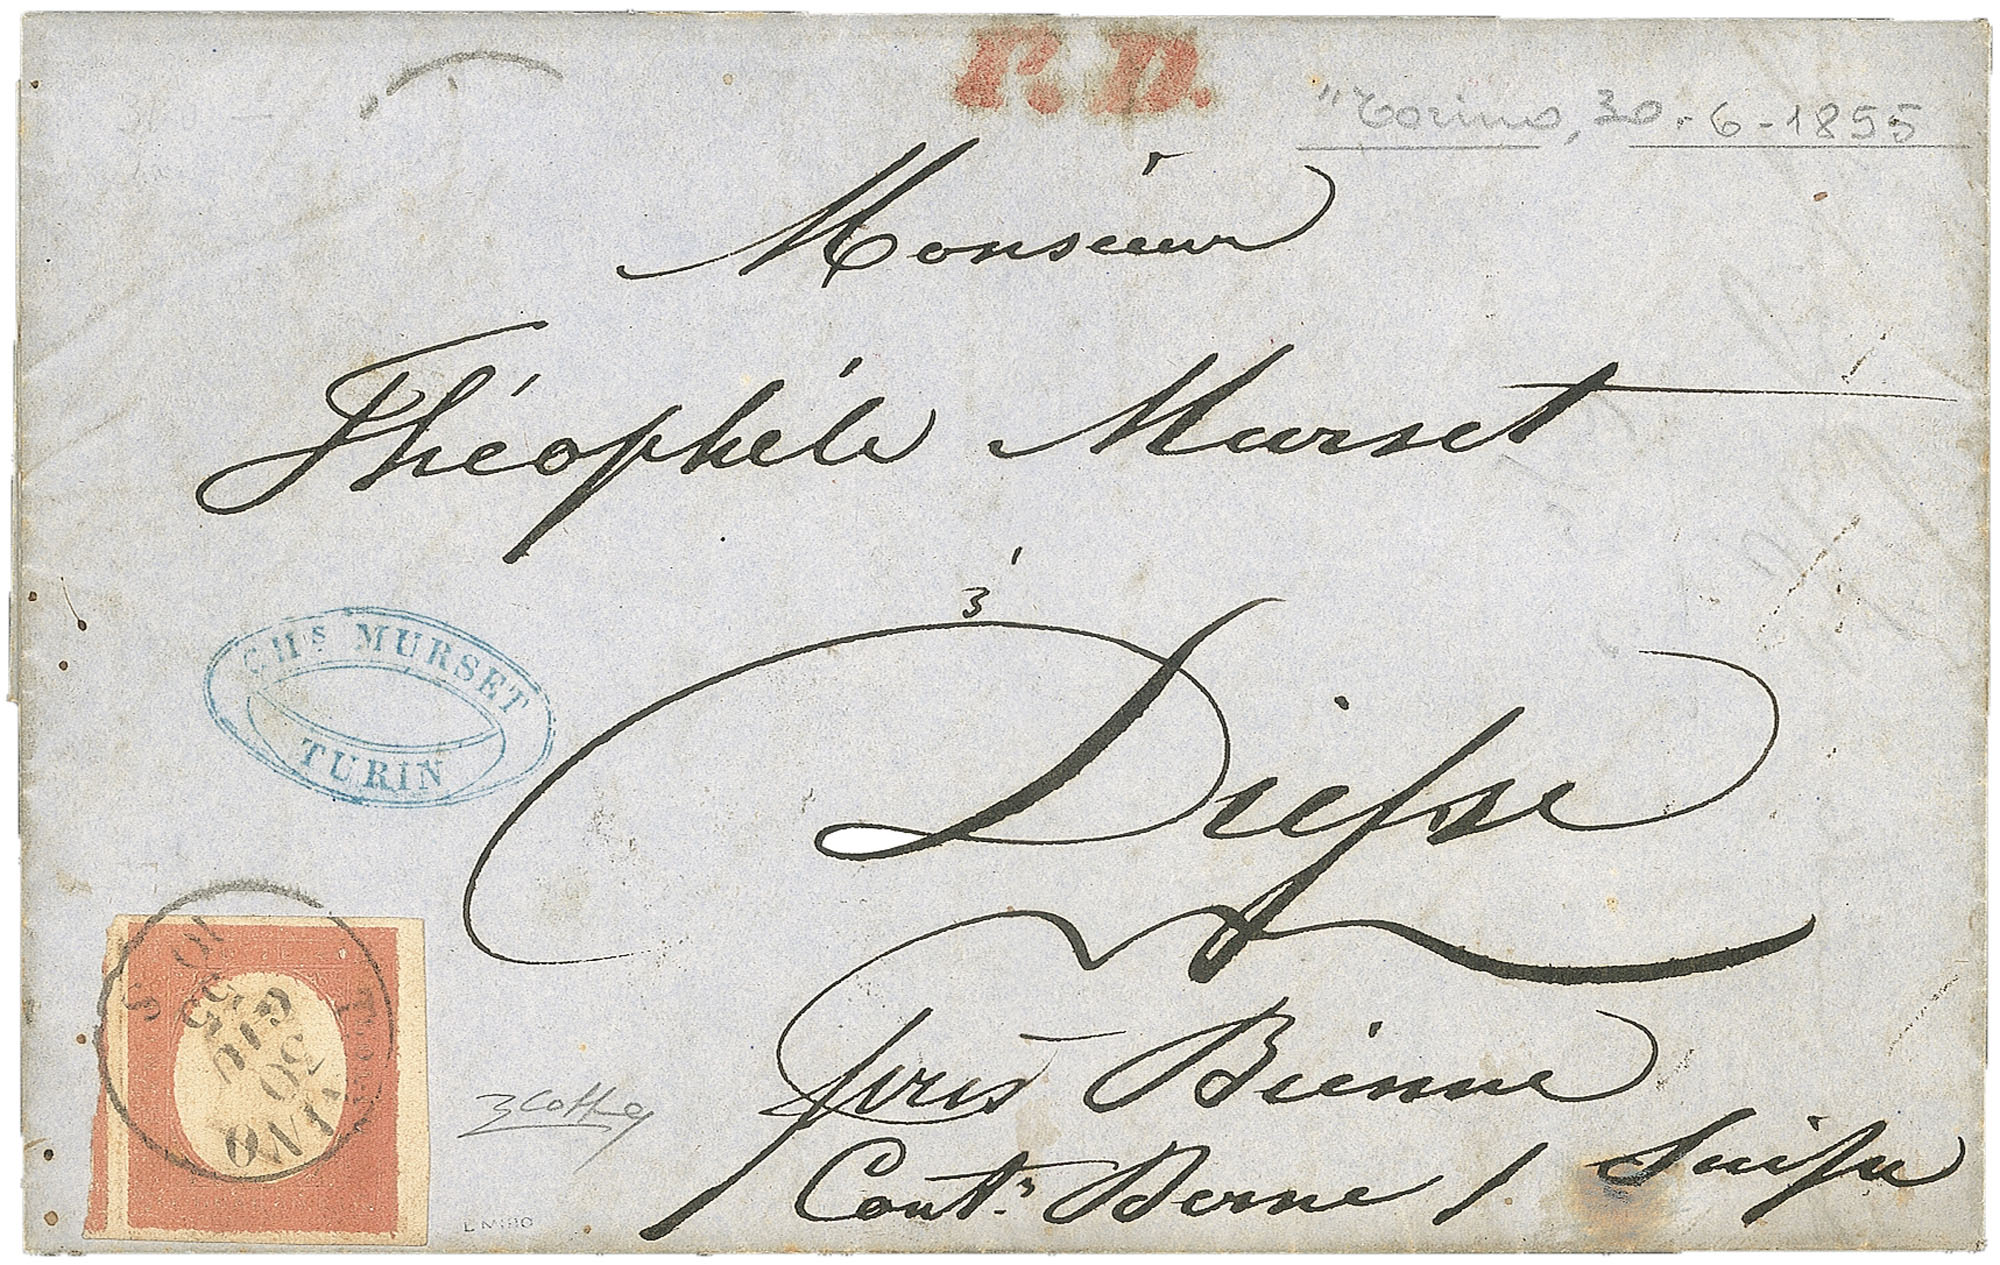 P.D.
"Torino, 30.-6-1855
Monsieur
Théophile Murset
à
Diesse
CHS MURSET
TURIN
près Bienne
Cont. Berne / Suisse
TORINO
30
GIU
55
10 S
E MIRO